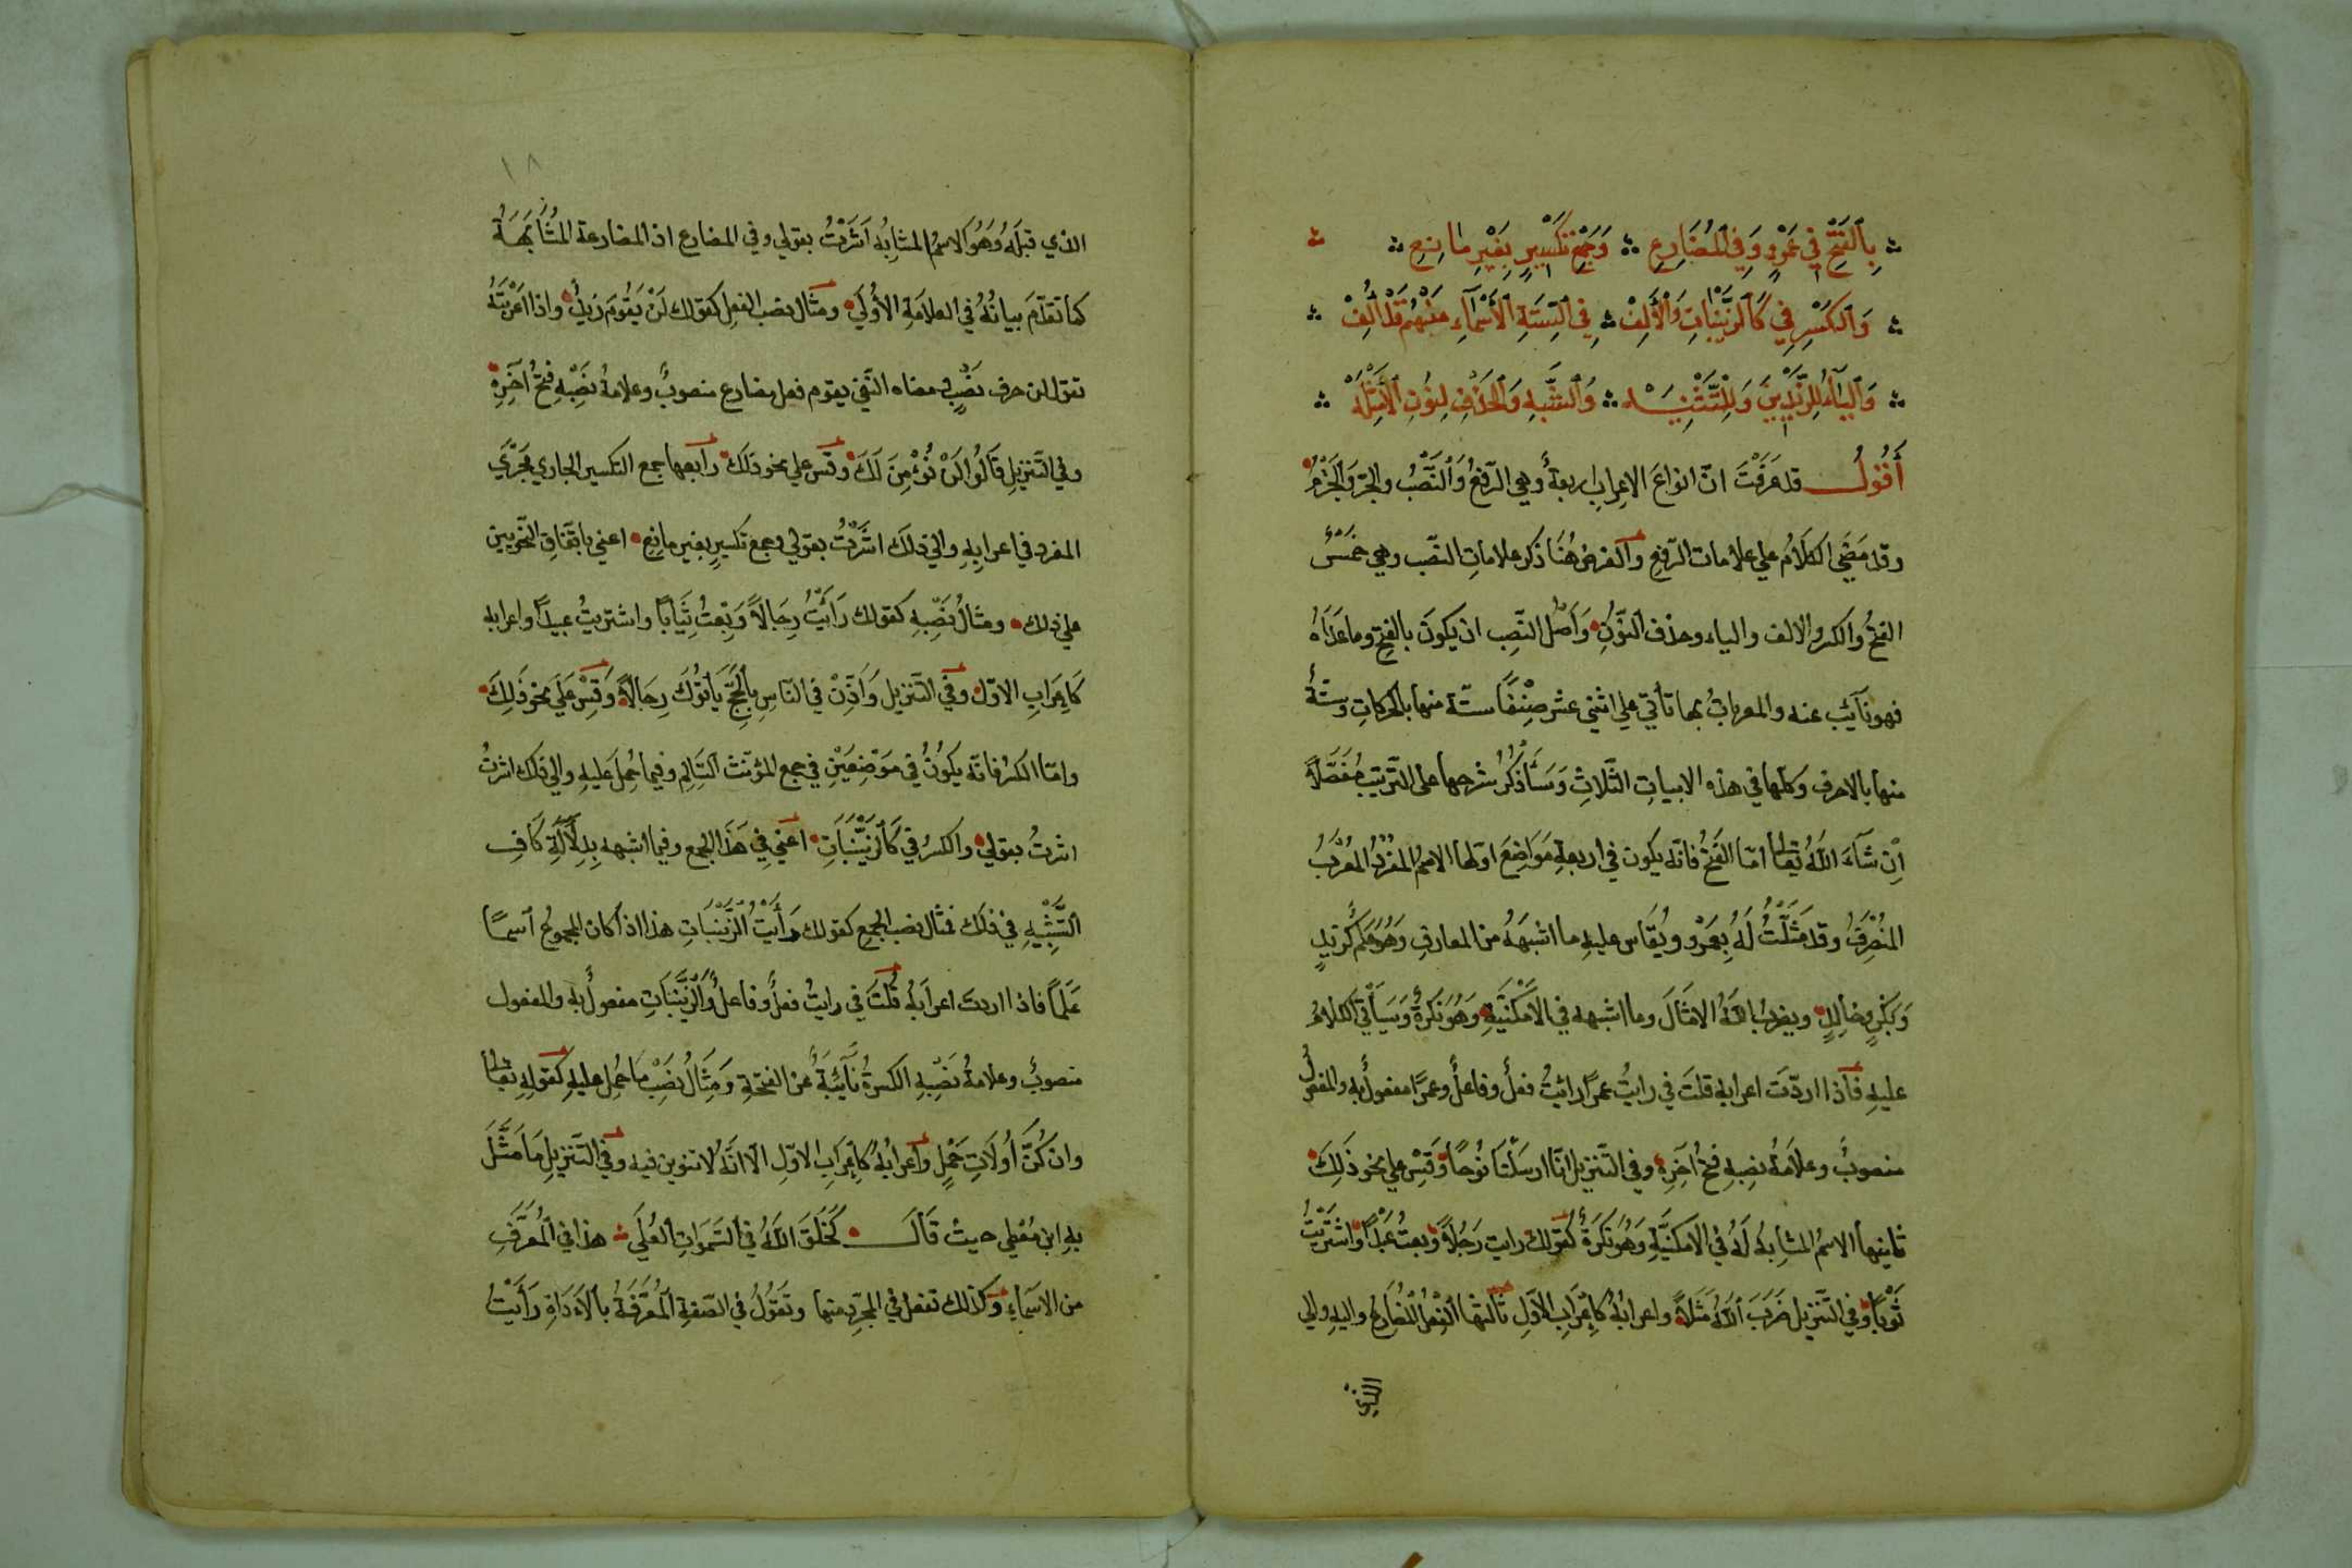 بِالْفَتْحِ فِي عَمْرٍو وَفِي الْمُضَارِعِ ۞ وَجَمْعِ تَكْسِيرٍ بِغَيْرِ مَانِعِ
وَالْكَسْرِ فِي كَالزَّيْنَبَاتِ وَالْأَلِفْ ۞ فِي السِّتَّةِ الْأَسْمَاءِ مِنْهُمْ قَدْ أُلِفْ
وَالْيَاءُ لِلزَّيْدِينَ وَلِلتَّثْنِيَه ۞ وَالشَّبَهِ وَالْحَذْفِ لِنُونِ الْأَمْثِلَهْ
أَقُولُ قد عَرَفْتَ انّ انواعَ الاعرابِ اربعةٌ وهي الرّفعُ وَالنَّصْبُ والجرّ وَالْجَزْمُ
وقد مَضَى الكَلَامُ علي علامات الرّفعِ والغرض هُنَا ذكر علاماتِ النصّب وهي خمسٌ
الفتحُ والكسر والالف والياء وحذف النّونِ وَأَصْل النّصبِ ان يكونَ بالفتحِ وما عَدَاهُ
فهو نآئب عنه والمعرباتُ بها تأتي علي اثني عشر صِنْفًا ستّة منها بالحركاتِ وستّةٌ
منها بالاحرف وكلها في هذه الابياتِ الثّلاثِ وَسَأَذْكُرُ شرحها على التّرتيب مُفَصَّلاً
اِن شَآءَ اللهُ تعالى امّا الفَتحُ فانّه يكون في اربعةِ مَوَاضِعَ اولها الاسمُ المفْردُ المُعْرَبُ
المنْصَرِفُ وقد مَثَّلْتُ لَهُ بِعَمْرو ويُقَاس عليهِ ما اشبهَهُ من المعارفِ وَهُوَ عَلَم كَزيدٍ
وَبَكْرٍ وخالدٍ ويضربُ اللهُ الامثَالَ وما اشبهه في الاَمْكَنِيَّةِ وَهُوَ نَكِرَةٌ وَسَيَأْتي الكلَامُ
عليهِ فاذا اردّتَ اعرابه قلتَ في رايتُ عمرًا رائيتُ فعلٌ وفاعلٌ وعمرًا مفعولٌ به والمفعولُ
منصوبٌ وعلاَمةُ نصبهِ فتحُ آخِرِهِ وفي التّنزيل انّا ارسَلْنَا نُوحًا وَقِسْ علي نحو ذَلِكَ
ثانيها الاسمُ المشابهُ لَهُ في الاَمكنيَّةِ وَهُوَ نَكرَةٌ كقولك رايت رَجُلاً وبعتُ عَبْدًا واشتَرَيْتُ
ثَوْبًا وفي التَّنزيل ضَرَبَ اللهُ مَثَلاً واعرابُهُ كاِعْرَابِ الاَوّلِ ثالثها الفعْلُ المُضَارعُ واليهِ والي
الذي
١٨
الذي قبلَهُ وَهُوَ الاسمُ المشابِهُ اَشَرْتُ بقولي وفي المضارع اذ المضارعة المُشَابَهَةُ
كما تقدّمَ بيانُهُ في العلامَةِ الأُولَي ومثال نصب الفعلِ كقولك لَنْ يَقُومَ زَيدٌ واذا اعْرَبْتَهُ
تقول لن حرف نَصْبٍ معناه النّفي يقوم فعل مضارع منصوبٌ وعلامةُ نصْبِهِ فتحُ آخِرِهِ
وفي التّنزيلِ قَالُوا لَنْ نُؤْمِنَ لَكَ وقس علي نحو ذلكَ رابعها جمع التكسير الجاري مَجْرَي
المفرد في اعرابِهِ والي ذلكَ اشَرْتُ بقولي وجمع تكسيرٍ بغير مانِعِ اعني باتّفاقِ النّحويين
علي ذلك ومثالُ نَصْبِهِ كقولك رَأَيْتُ رِجَالاً وَبِعتُ ثِيَابًا واشتريتُ عبيدًا واعرابه
كاِعْرَابِ الاوّل وفي التّنزيل وَاَذِّنْ في النّاسِ بِالْحَجِّ يَأتُوكَ رِجَالاً وَقِسْ عَلَي نحو ذَلِكَ
وامّا الكسْرُ فانّه يكُونُ في مَوْضِعَيْنِ في جمع المؤنّث السّالِمِ وفيما حُمِلَ عَليهِ والي ذلك اشرتُ
اشرتُ بقولي والكسرُ في كَالزَّيْنَبَاتِ اعني في هَذَا الجمع وفيما اشبهه بِدِلَالَةِ كَافِ
التَّشْبِيهِ في ذلك فمثَال نصب الجمع كقولك رَأَيْتُ الزَّيْنَبَاتِ هذا اذا كان المجموعُ اسمًا
عَلَمًا فاذا اردتَ اعرَابهُ قُلتَ في رايتُ فعلٌ وفاعلٌ وَالزَّيْنَبَاتِ مفعولٌ بهِ والمفعول
منصوبٌ وعلامةُ نَصْبِهِ الكسرةُ نَآئِبَةٌ عن الفتحةِ وَمِثَالُ نصْبِ ما حُمِل عليهِ كقولِهِ تعالى
وان كُنَّ أُولَاتِ حَمْلٍ واعرابُهُ كاِعْرَابِ الاوّلِ الّا انّهُ لا تنوين فيه وفي التّنزيلِ مَا مَثَّلَ
بهِ ابن مُعْطِي حيث قَالَ كَخَلَقَ اللهُ السَّمَوَاتِ العُلَي هذا في المُعَرَّفِ
من الاسمآءِ وكذلك تفعل في المجرّدِ منها وتَقُولُ في الصّفةِ المُعَرَّفَةِ بالاَدَاةِ رَأَيْتُ